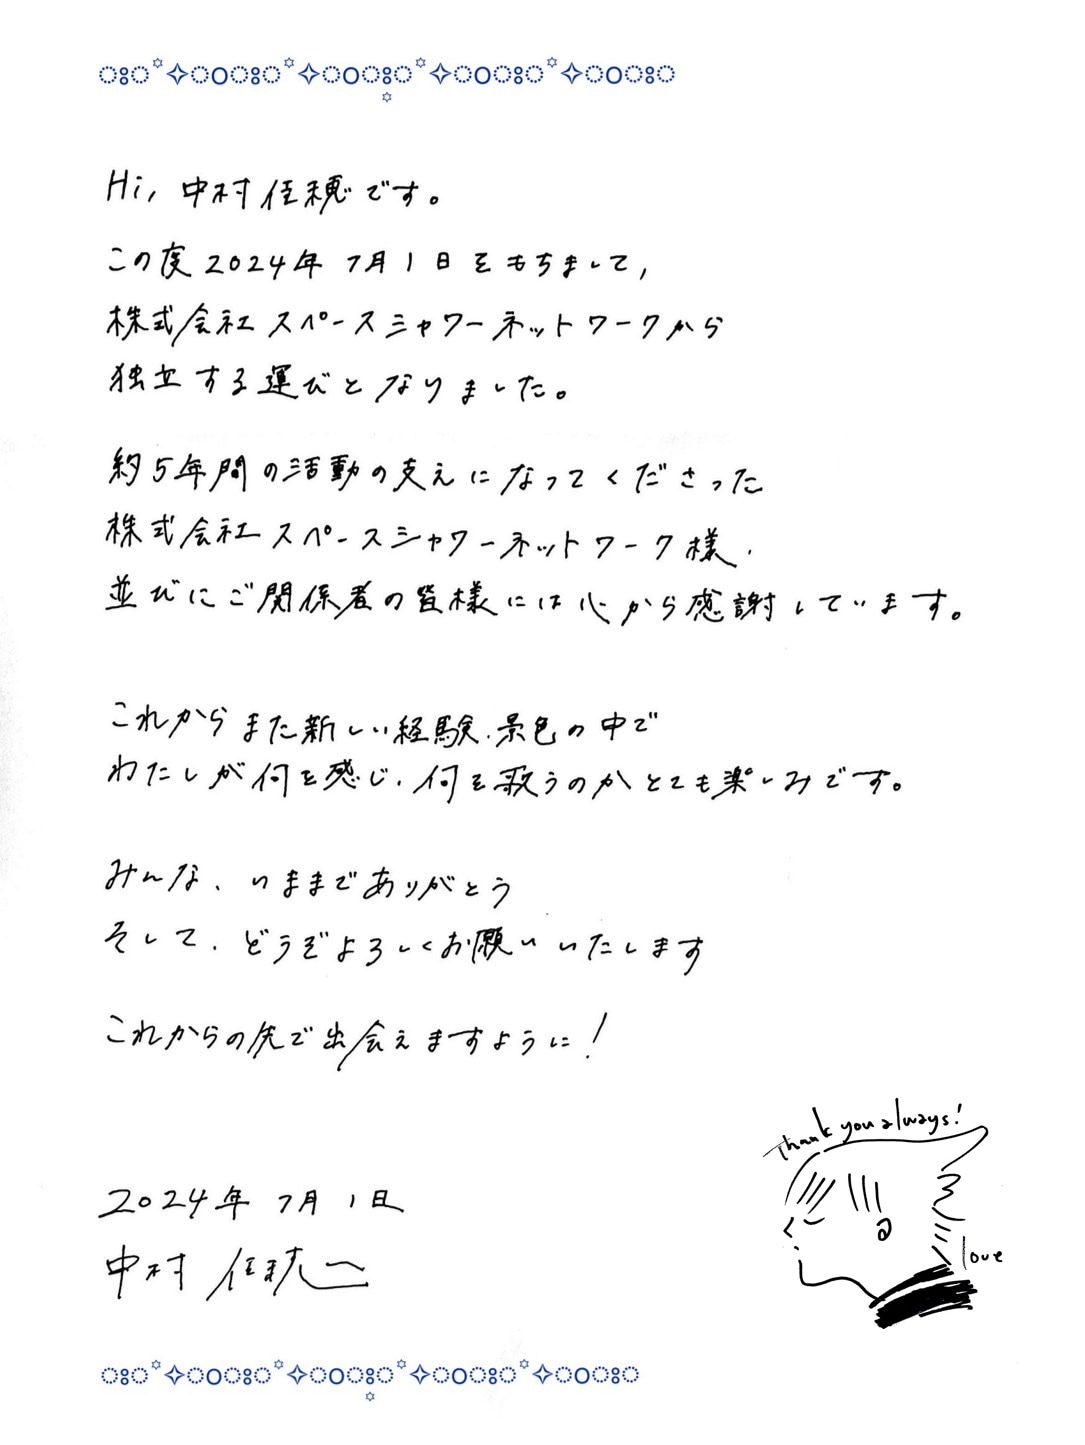 Hi, 中村佳穂です。
この度2024年7月1日をもちまして,
株式会社スペースシャワーネットワークから
独立する運びとなりました。
約5年間の活動の支えになってくださった
株式会社スペースシャワーネットワーク様、
並びにご関係者の皆様には心から感謝しています。
これからまた新しい経験、景色の中で
わたしが何を感じ、何を歌うのかとても楽しみです。
みんな、いままでありがとう
そして、どうぞよろしくお願いいたします
これからの先で出会えますように!
Thank you always!
love
2024年7月1日
中村佳穂